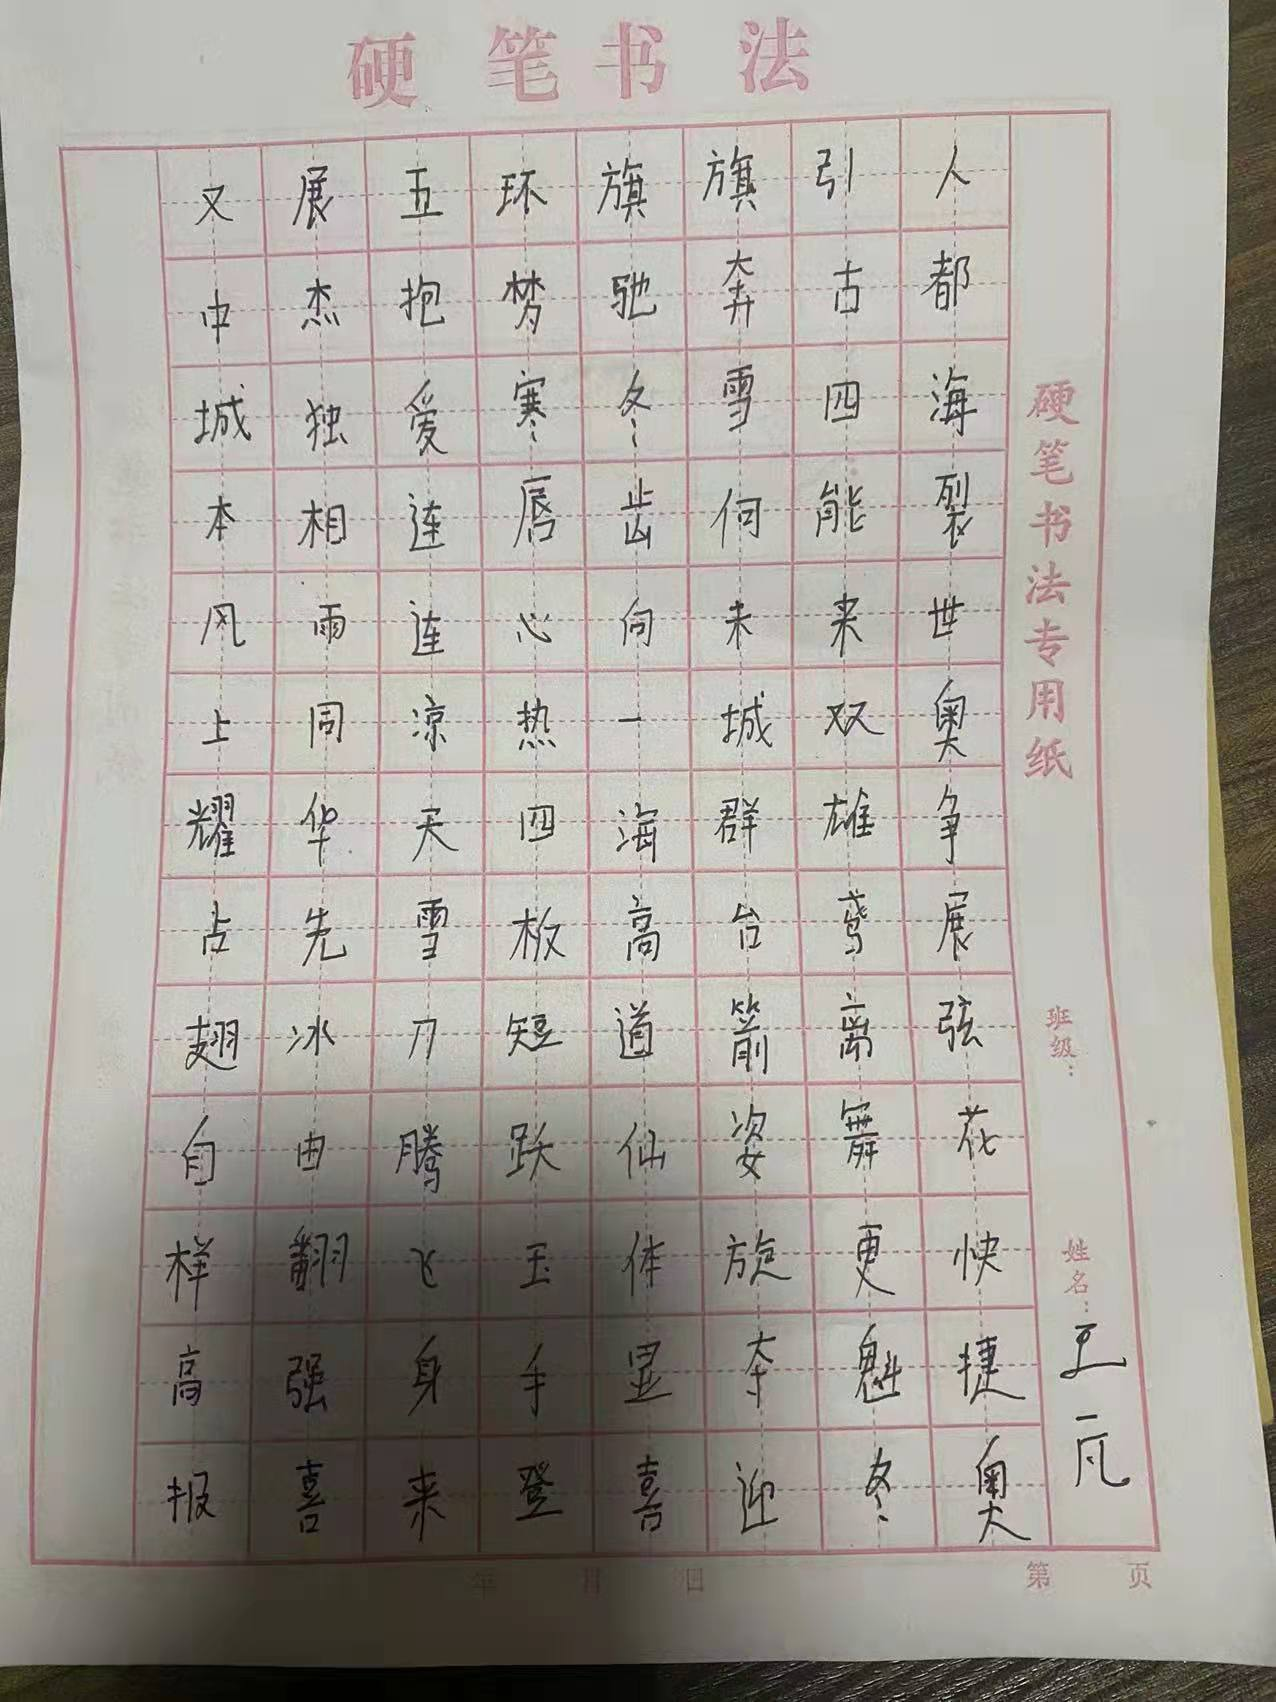 硬笔书法
又展五环旗旗引人
中杰抱梦驰奔古都
城独爱寒冬雪四海
本相连唇齿何能裂
风雨连心向未来世
上同凉热一城双奥
耀华天四海群雄争
占先雪板高台鸢展
翅冰刀短道箭离弦
自由腾跃仙姿舞花
样翻飞玉体旋更快
高强身手显夺魁捷
报喜来登喜迎冬奥
硬笔书法专用纸
班级：
姓名：王一凡
年 月 日
第 页